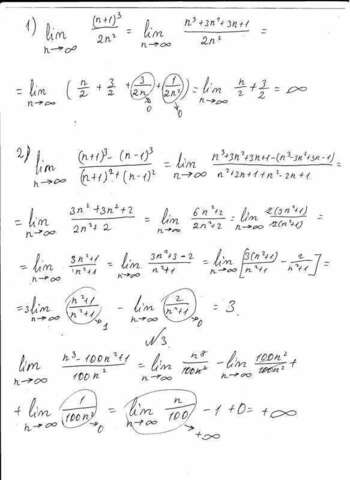 1) lim n→∞ (n+1)³/2n² = lim n→∞ (n³+3n²+3n+1)/2n² =
= lim n→∞ (n/2 + 3/2 + 3/2n →0 + 1/2n² →0) = lim n→∞ n/2 + 3/2 = ∞
2) lim n→∞ ((n+1)³-(n-1)³)/((n+1)²+(n-1)²) = lim n→∞ (n³+3n²+3n+1-(n³-3n²+3n-1))/(n²+2n+1+n²-2n+1) =
= lim n→∞ (3n²+3n²+2)/(2n²+2) = lim n→∞ (6n²+2)/(2n²+2) = lim n→∞ 2(3n²+1)/2(n²+1) =
= lim n→∞ (3n²+1)/(n²+1) = lim n→∞ (3n²+3-2)/(n²+1) = lim n→∞ [3(n²+1)/(n²+1) - 2/(n²+1)] =
=3 lim n→∞ (n²+1)/(n²+1) →1 - lim n→∞ 2/(n²+1) →0 = 3.
№3.
lim n→∞ (n³-100n²+1)/100n² = lim n→∞ n³/100n² - lim n→∞ 100n²/100n² +
+ lim n→∞ 1/100n² →0 = lim n→∞ n/100 →+∞ - 1 + 0 = +∞